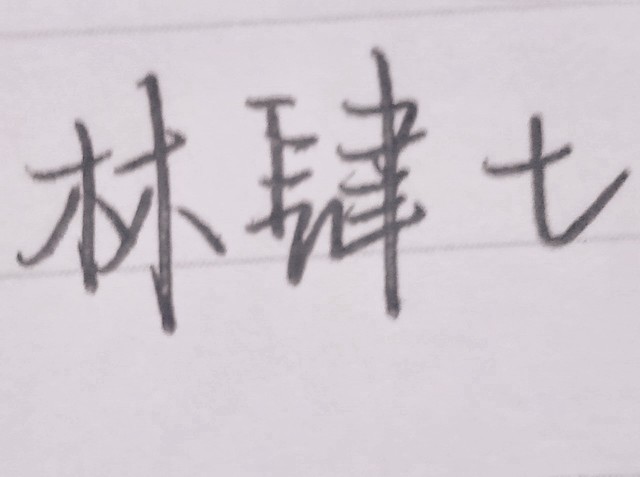 林肆七